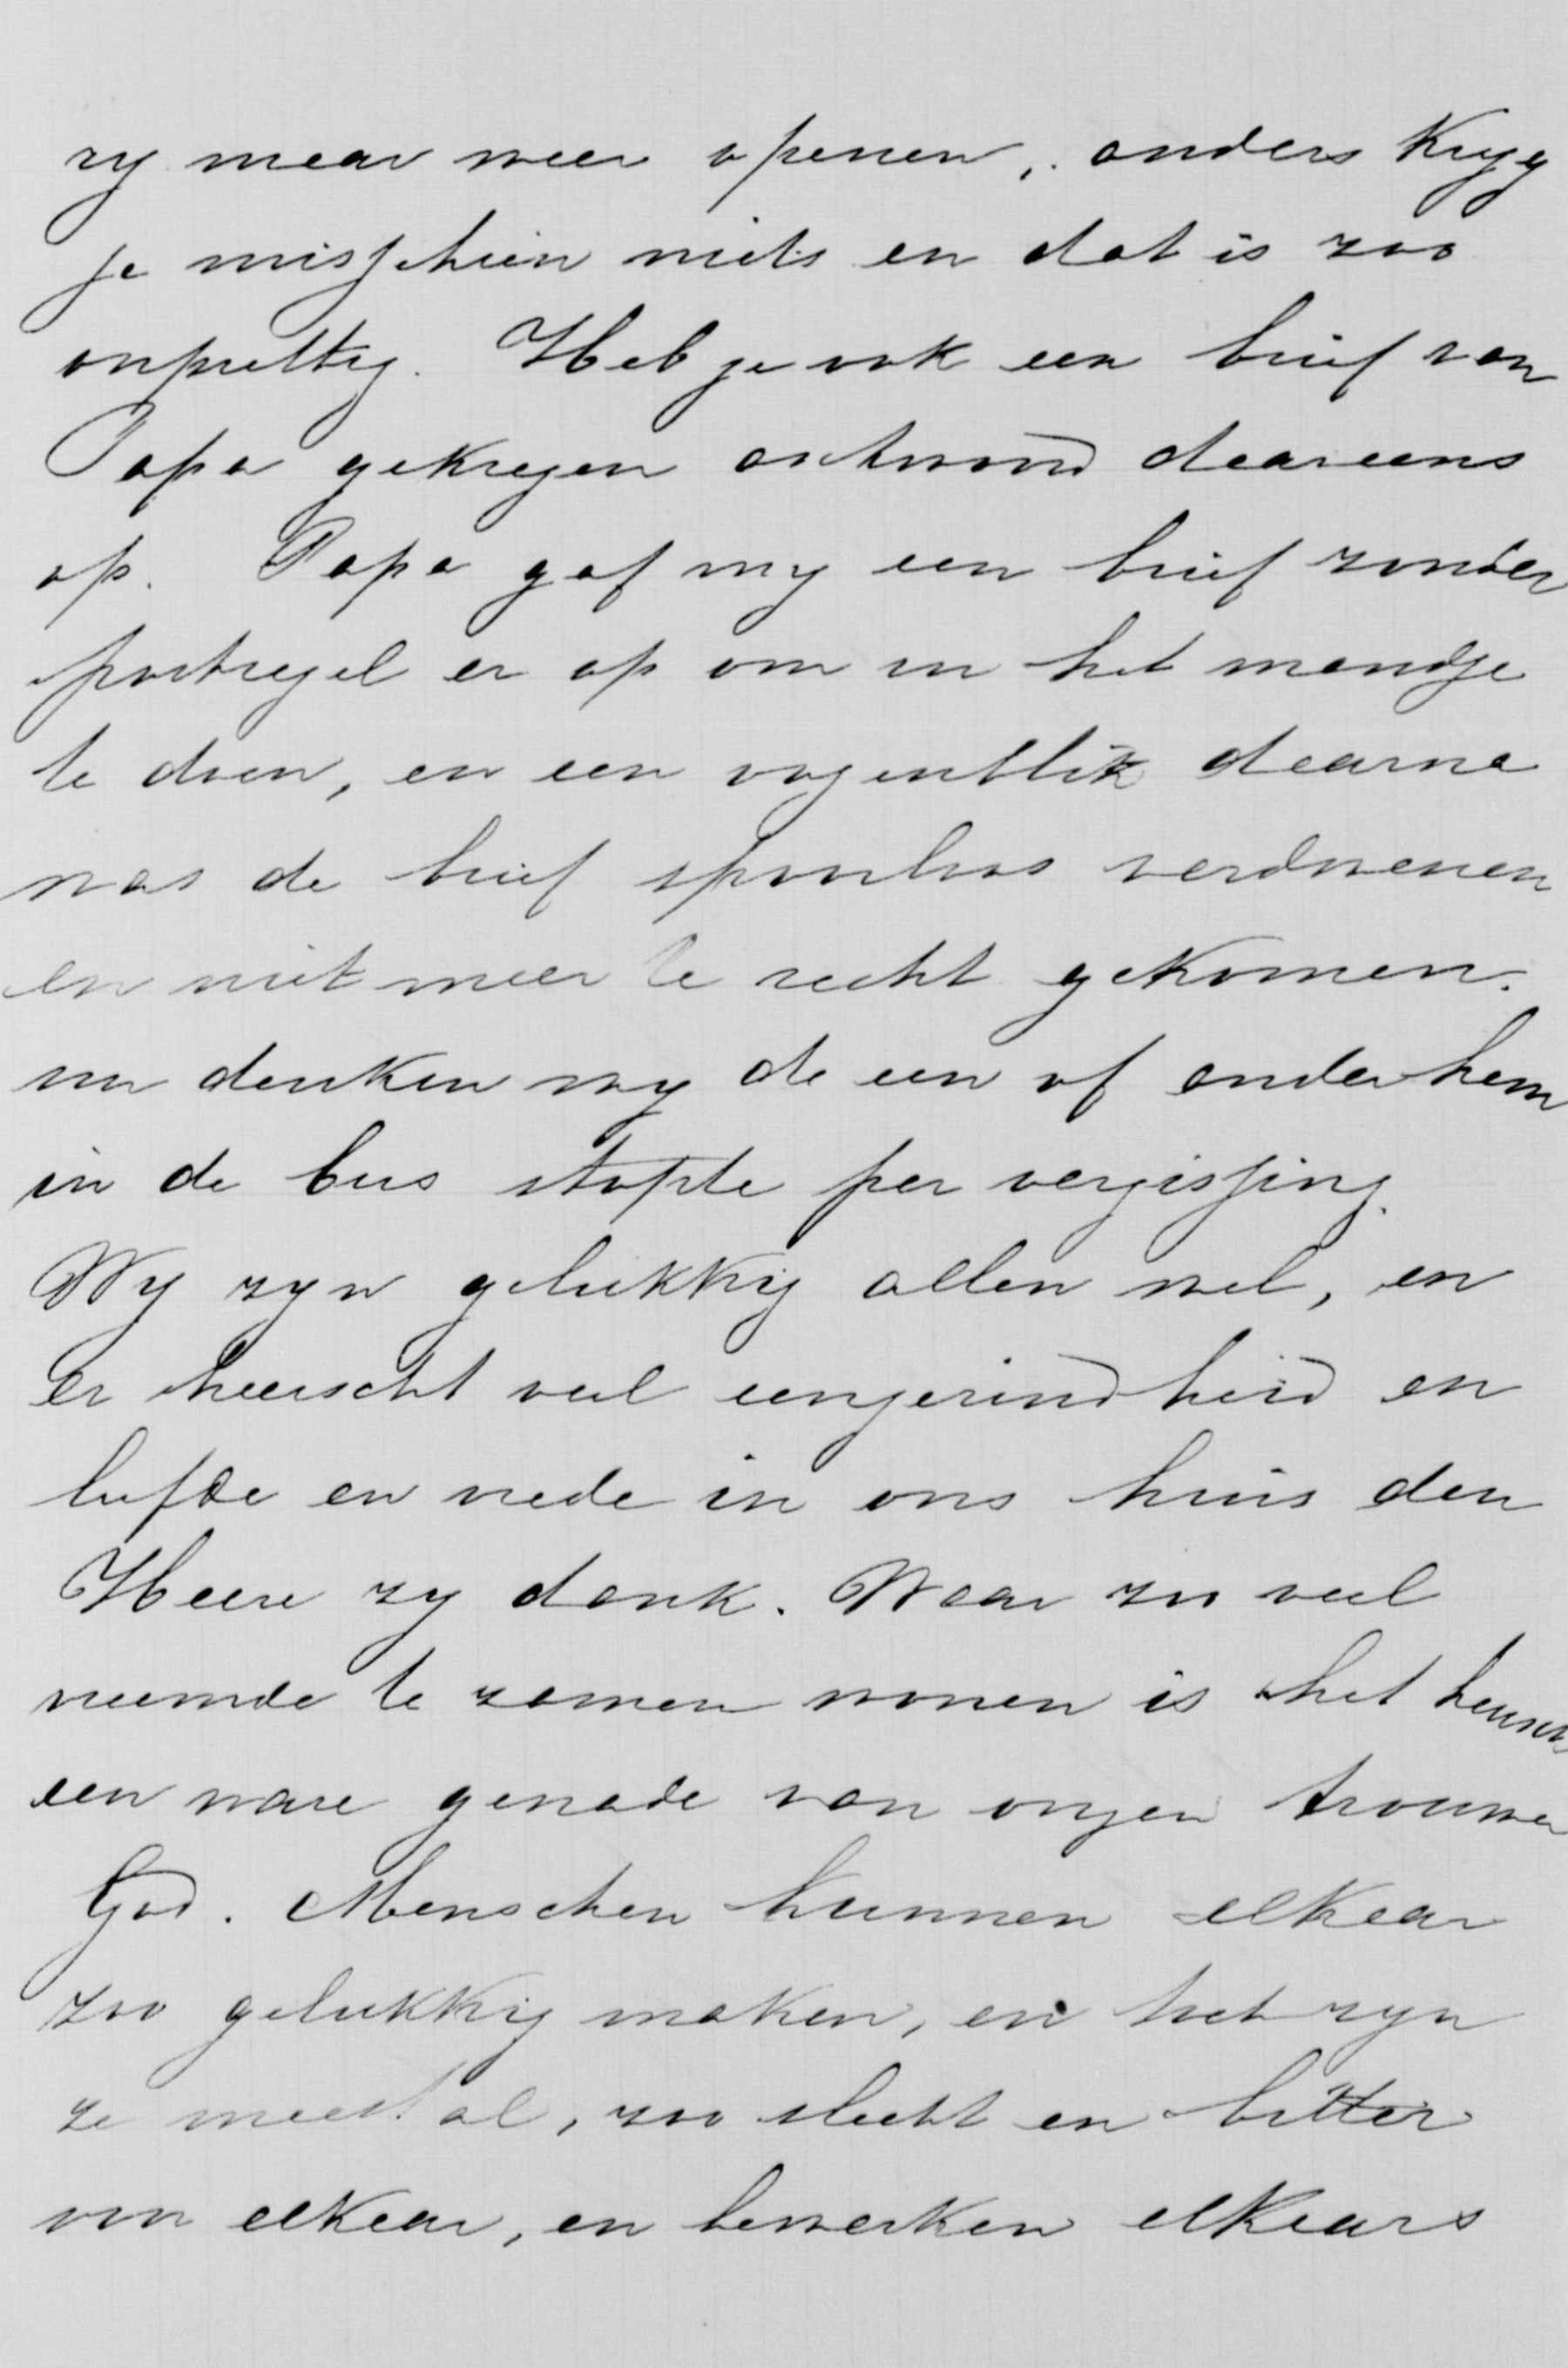 zy maar weer openen, anders Kryg
je misschien niets en dat is zoo
onprettig. Heb je ook een brief van
Papa gekregen antwoord daar eens
op. Papa gaf my een brief zonder
postzegel er op om in het mandje
te doen, en een oogenblik daarna
was de brief spoorloos verdwenen
en niet meer te recht gekomen.
nu denken wy de een of ander hem
in de bus stopte per vergissing.
Wy zyn gelukkig allen wel, en
er heerscht veel eensgezindheid en
liefde en vrede in ons huis den
Heere zy dank. Waar zoo veel
vreemde te zamen wonen is het
een ware genade van onzen trouwen
God. Menschen kunnen elkaar
zoo gelukkig maken, en het zyn
ze meestal, zoo slecht en bitter
voor elkaar, en bewerken elkaars